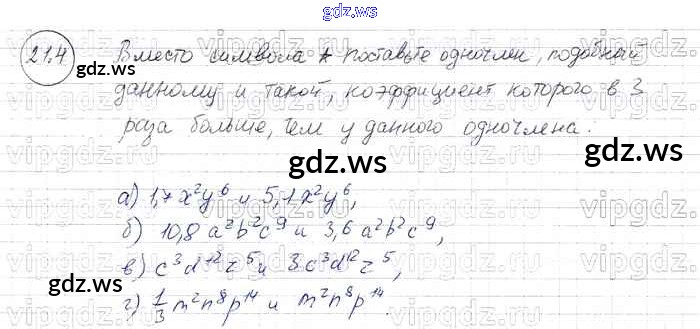 gdz.ws
21.4 Вместо символа * поставьте одночлен, подобный
gdz.ws
данному и такой, коэффициент которого в 3
раза больше, чем у данного одночлена.
gdz.ws
gdz.ws
а) 1,7 x²y⁶ и 5,1 x²y⁶,
б) 10,8 a²b²c⁹ и 3,6 a²b²c⁹,
gdz.ws
в) c³d¹²z⁵ и 3c³d¹²z⁵,
г) 1/3 m²n⁸p¹⁴ и m²n⁸p¹⁴.
gdz.ws